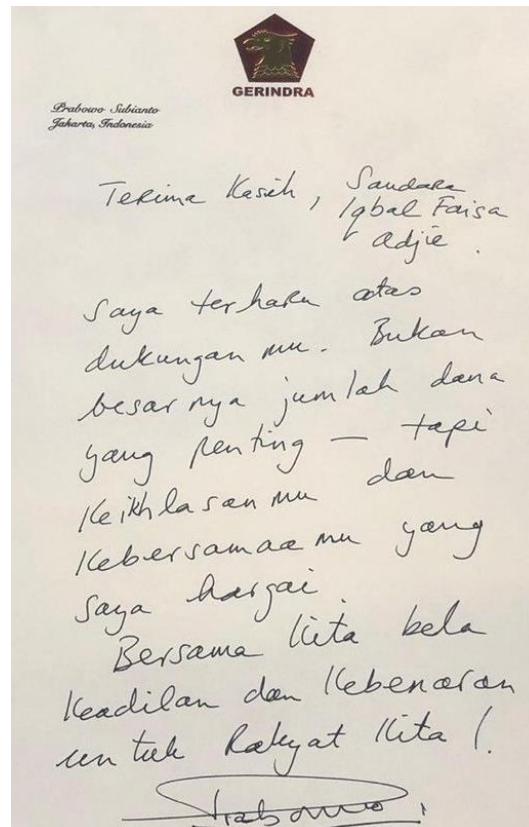 GERINDRA
Prabowo Subianto
Jakarta, Indonesia
Terima Kasih, Saudara
Iqbal Faisa
Adjie.
Saya terharu atas
dukungan mu. Bukan
besar nya jumlah dana
yang penting — tapi
Keikhlasan mu dan
Kebersamaa mu yang
saya hargai.
Bersama Kita bela
Keadilan dan Kebenaran
untuk Rakyat Kita!
Prabowo.